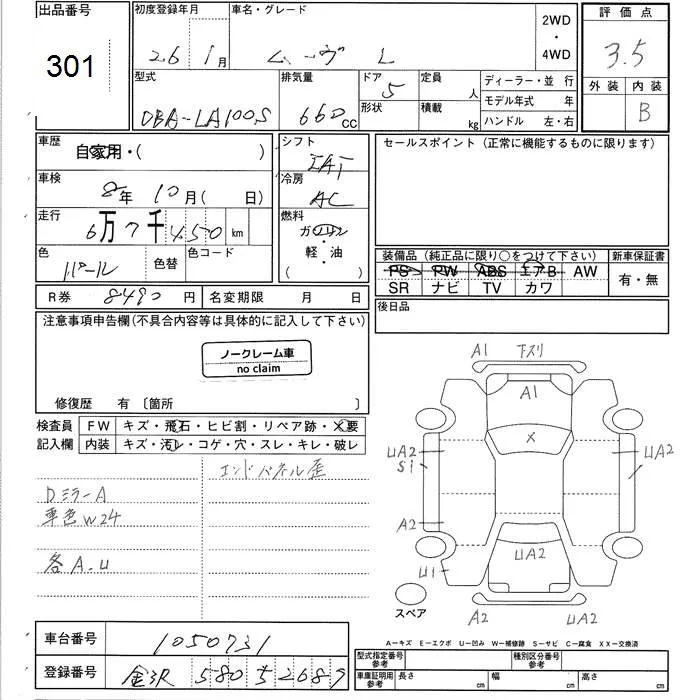 出品番号 初度登録年月 車名・グレード 2WD・4WD 評価点
301 26 1月 ムーヴ L 3.5
型式 排気量 ドア 5 定員 人 ディーラー・並 行 外装 内装
DBA-LA100S 660cc 形状 積載 kg モデル年式 年 B
ハンドル 左・右
車歴 自家用・( ) シフト IAT セールスポイント (正常に機能するものに限ります)
車検 8年 10月( 日) 冷房 AC
走行 6万7千450km 燃料 ガソリン
軽・油
( )
色 パール 色替 色コード 装備品 (純正品に限り○をつけて下さい) 新車保証書
PS PW ABS エアB AW 有・無
SR ナビ TV カワ
R券 8490円 名変期限 月 日 後日品
注意事項申告欄(不具合内容等は具体的に記入して下さい)
ノークレーム車
no claim
修復歴 有 〔箇所 〕
検査員 FW キズ・飛石・ヒビ割・リペア跡・X要
記入欄 内装 キズ・汚レ・コゲ・穴・スレ・キレ・破レ
エンドパネル歪
Dミラー A
車色 W24
各A.U
A1 下スリ
A1
X
UA2
S1
UA2
A2
UA2
U1
スペア
A2 UA2
A-キズ E-エクボ U-凹み W-補修跡 S-サビ C-腐食 XX-交換済
車台番号 1050731
登録番号 金沢 580 ち 2689
型式指定番号 参考 種別区分番号 参考
車庫証明用 参考 長さ cm 幅 cm 高さ cm